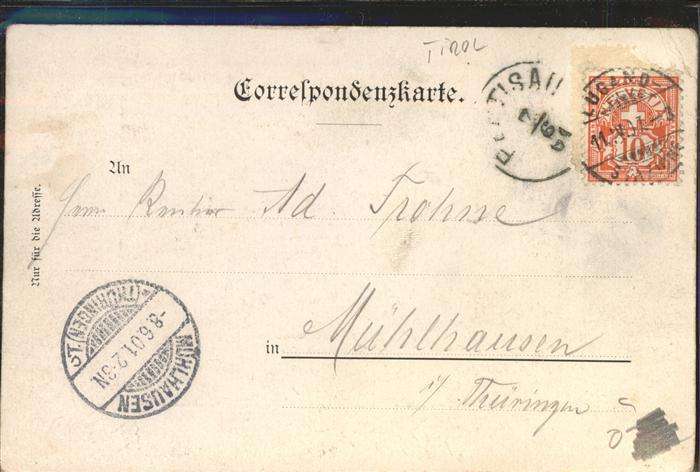 TIROL
Correspondenzkarte.
PERTISAU
LUGANO
HELVETIA
10
An
Herrn Rentier Ad. Trohne
Nur für die Adresse.
in Mühlhausen
i/ Thüringen
MÜHLHAUSEN
-8.6.01.2-3N
ST.(THÜRINGEN)